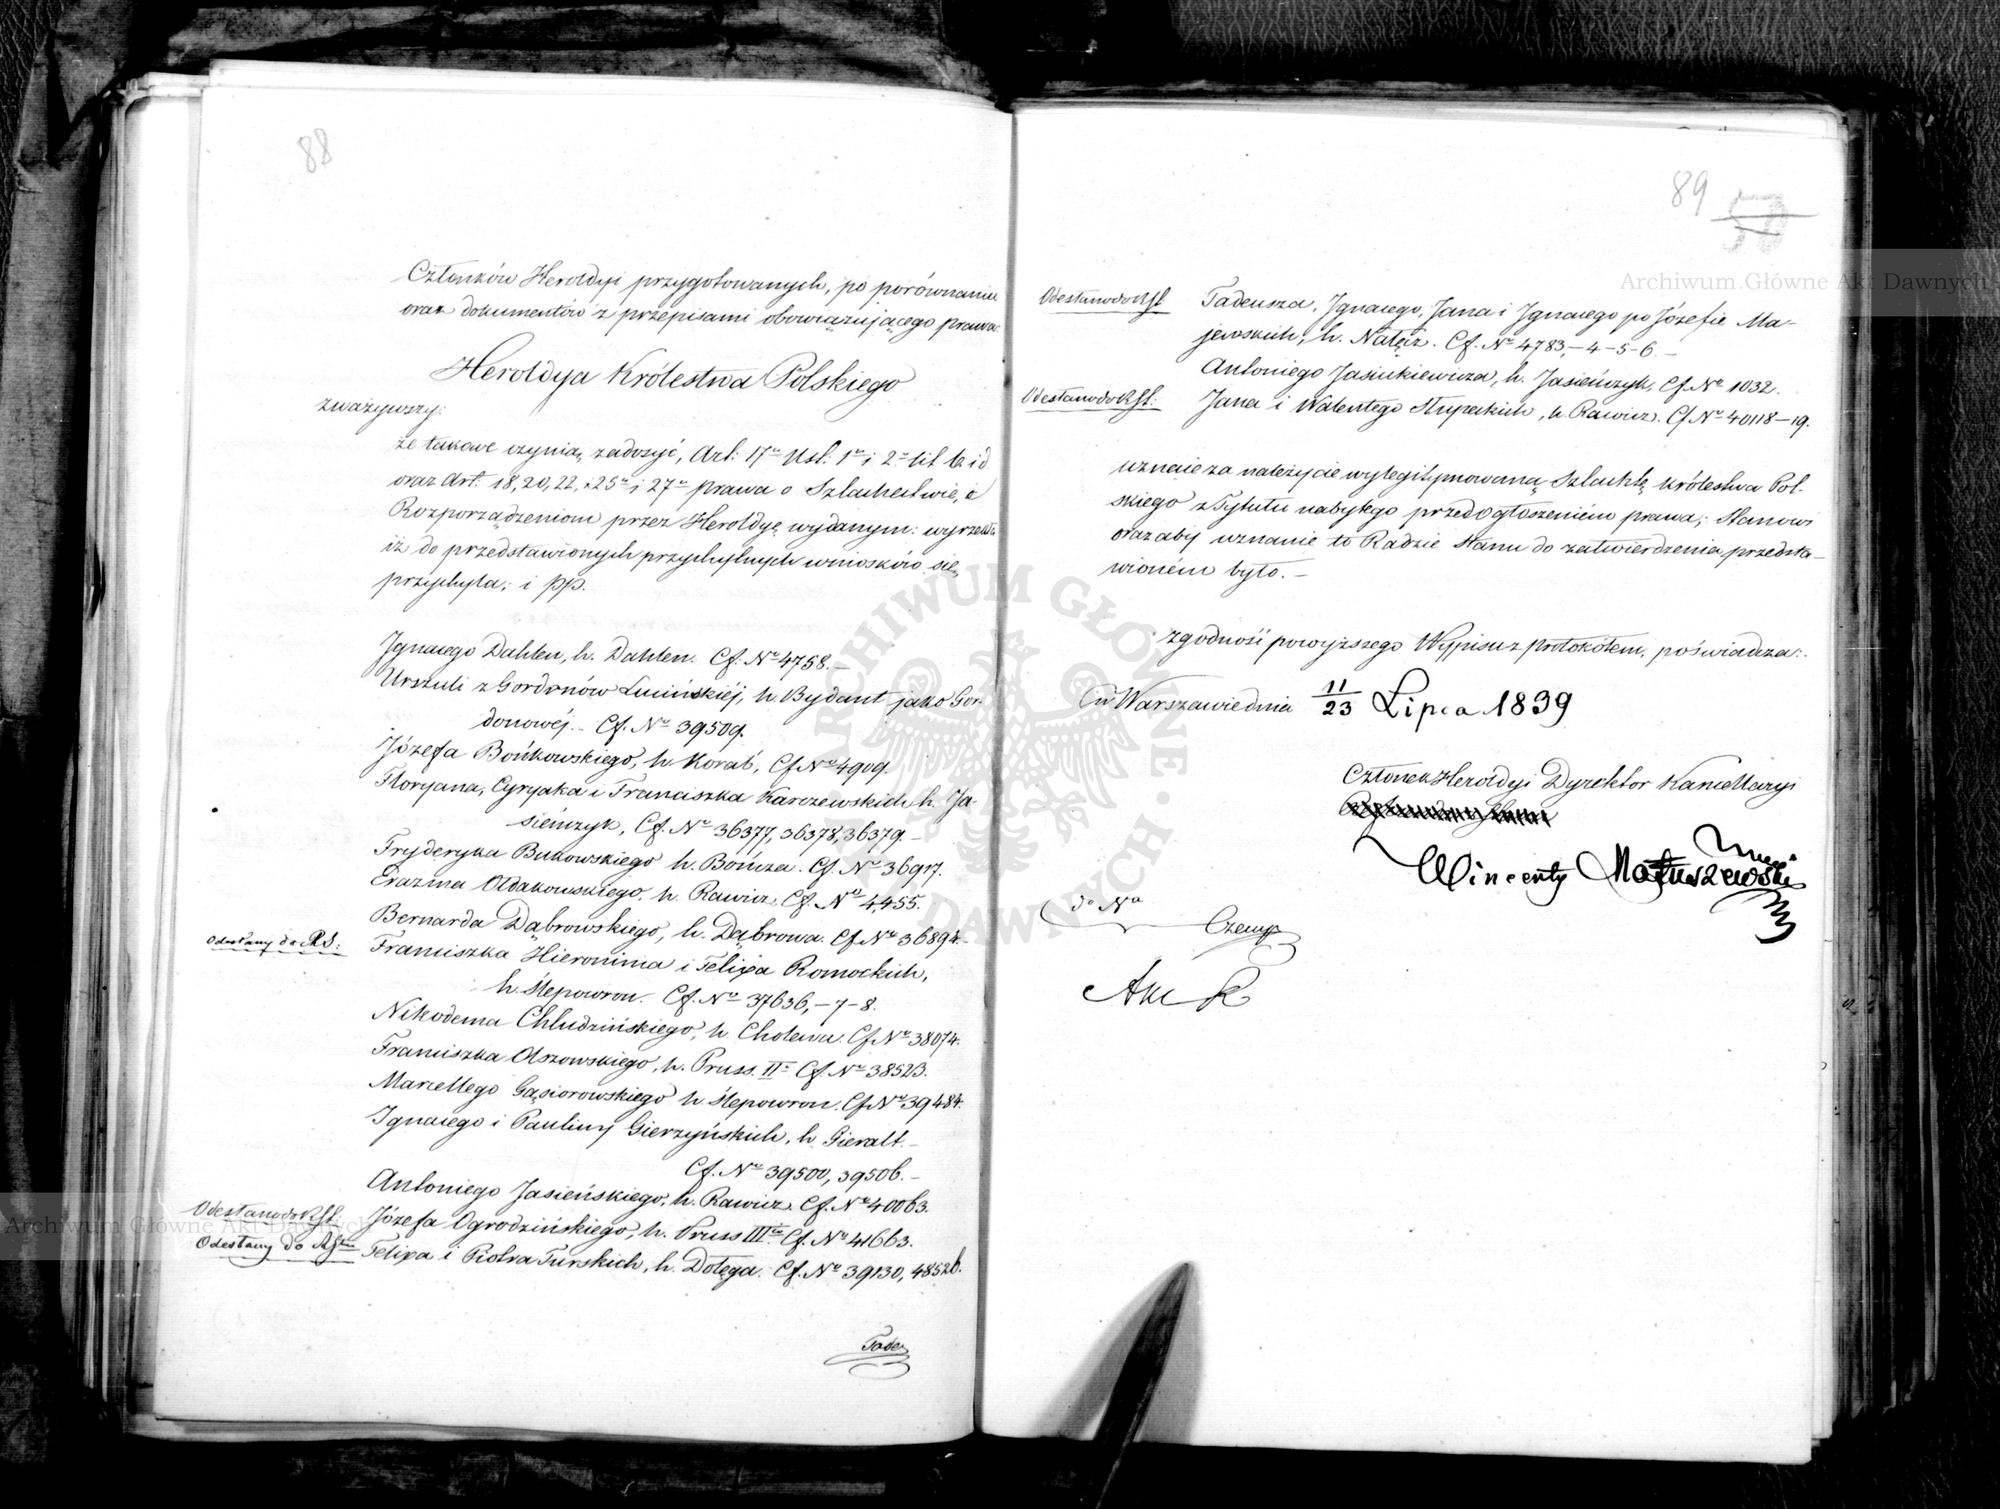 88
Członków Heroldyi przygotowanych, po porównaniu
oraz dokumentów z przepisami obowiązującego prawa:
Heroldya Królestwa Polskiego
zważywszy:
że takowe czynią zadosyć, Art: 17º Ust: 1º i 2º lit b i d
oraz Art. 18, 20, 22, i 25º i 27º prawa o Szlachectwie, i
Rozporządzeniom przez Heroldyę wydanym: wyrzekła
iż do przedstawionych przychylnych wniosków się
przychyla; i pp.
Ignacego Dahlen, h. Dahlen. Cf. Nº 4758.—
Urszuli z Gordonów Lucińskiéj, h. Bydant jako Gor-
donowéj.— Cf. Nº 39509.
Józefa Bońkowskiego, h. Korab, Cf Nº 4909.
Floryana, Cyryaka i Franciszka Karczewskich h. Ja-
sieńczyk, Cf. Nº 36377, 36378, 36379.—
Fryderyka Bukowskiego h. Bończa. Cf. Nº 36917.
Erazma Ołdakowskiego, h. Rawicz, Cf. Nº 4,455.
Bernarda Dąbrowskiego, h. Dąbrowa. Cf Nº 36894.—
Odesłany do RS: Franciszka Hieronima i Felixa Romockich,
h. Ślepowron. Cf. Nº 37636,—7—8.
Nikodema Chludzińskiego, h. Cholewa. Cf Nº 38074.
Franciszka Olszowskiego, h. Pruss. IIº Cf. Nº 38523.
Marcellego Gąsiorowskiego h. Ślepowron. Cf Nº 39484.
Ignacego i Pauliny Gierzyńskich, h. Gieralt.—
Cf. Nº 39500, 39506.—
Antoniego Jasieńskiego, h. Rawicz. Cf. Nº 40063.
Odesłano do RSt. Józefa Ogrodzińskiego, h. Pruss III Cf. Nº 41663.
Odesłany do Felixa i Piotra Turskich, h. Dołęga. Cf. Nº 39130, 48526.
Tade
89 50
Odesłano do RSt. Tadeusza, Ignacego, Jana i Ignacego po Józefie Ma-
jewskich, h. Nałęcz. Cf. Nº 4783,—4—5—6.—
Antoniego Jasiukiewicza, h. Jasieńczyk, Cf Nº 1032.
Odesłano do RSt: Jana i Walentego Słupeckich, h. Rawicz. Cf Nº 40118—19.
uznaie za należycie wylegitymowaną Szlachtę Królestwa Pol-
skiego z Tytułu nabytego przed ogłoszeniem prawa; Stanowi
oraz aby uznanie to Radzie Stanu do zatwierdzenia przedsta-
wionem było.—
Zgodność powyższego Wypisu z protokółem, poświadcza:
w Warszawie dnia 11/23 Lipca 1839
Członek Heroldyi Dyrektor Kancellaryi
Wincenty Matuszewski
Archiwum Główne Akt Dawnych
Archiwum Główne Akt Dawnych
ARCHIWUM GŁÓWNE · AKT DAWNYCH ·